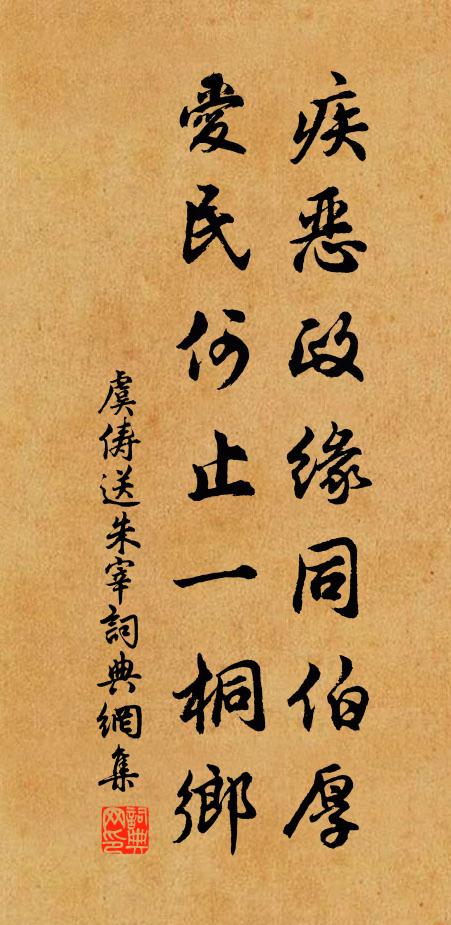 疾惡政緣同伯厚
愛民何止一桐鄉
虞儔送朱宰詞典網集
詞典網印